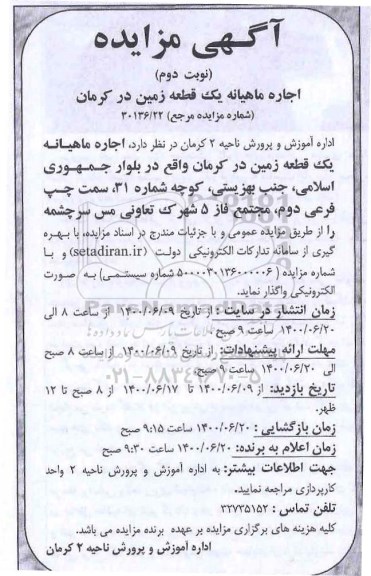 آگهی مزایده
(نوبت دوم)
اجاره ماهیانه یک قطعه زمین در کرمان
(شماره مزایده مرجع ۳۰۱۳۶/۲۲)
اداره آموزش و پرورش ناحیه ۲ کرمان در نظر دارد، اجاره ماهیانه
یک قطعه زمین در کرمان واقع در بلوار جمهوری
اسلامی، جنب بهزیستی، کوچه شماره ۳۱، سمت چپ
فرعی دوم، مجتمع فاز ۵ شهرک تعاونی مس سرچشمه
را از طریق مزایده عمومی و با جزئیات مندرج در اسناد مزایده، با بهره
گیری از سامانه تدارکات الکترونیکی دولت (setadiran.ir) و با
شماره مزایده (۵۰۰۰۰۳۰۱۳۶۰۰۰۰۰۶ شماره سیستمی) به صورت
الکترونیکی واگذار نماید.
زمان انتشار در سایت : از تاریخ ۱۴۰۰/۰۶/۰۹ از ساعت ۸ الی
۱۴۰۰/۰۶/۲۰ ساعت ۹ صبح
مهلت ارائه پیشنهادات: از تاریخ ۱۴۰۰/۰۶/۰۹ از ساعت ۸ صبح
الی ۱۴۰۰/۰۶/۲۰ ساعت ۹ صبح.
تاریخ بازدید: از ۱۴۰۰/۰۶/۰۹ تا ۱۴۰۰/۰۶/۱۷ از ۸ صبح تا ۱۲
ظهر.
زمان بازگشایی : ۱۴۰۰/۰۶/۲۰ ساعت ۹:۱۵ صبح
زمان اعلام به برنده: ۱۴۰۰/۰۶/۲۰ ساعت ۹:۳۰ صبح
جهت اطلاعات بیشتر: به اداره آموزش و پرورش ناحیه ۲ واحد
کارپردازی مراجعه نمایید.
تلفن تماس : ۳۲۷۳۵۱۵۲
کلیه هزینه های برگزاری مزایده بر عهده برنده مزایده می باشد.
اداره آموزش و پرورش ناحیه ۲ کرمان